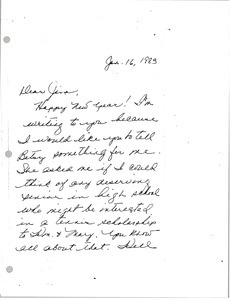 Jan. 16, 1983
Dear Jim,
Happy New Year! I'm
writing to you because
I would like you to tell
Betsy something for me.
She asked me if I could
think of any deserving
senior in high school
who might be interested
in a tennis scholarship
to Wm. & Mary. You know
all about that. Well